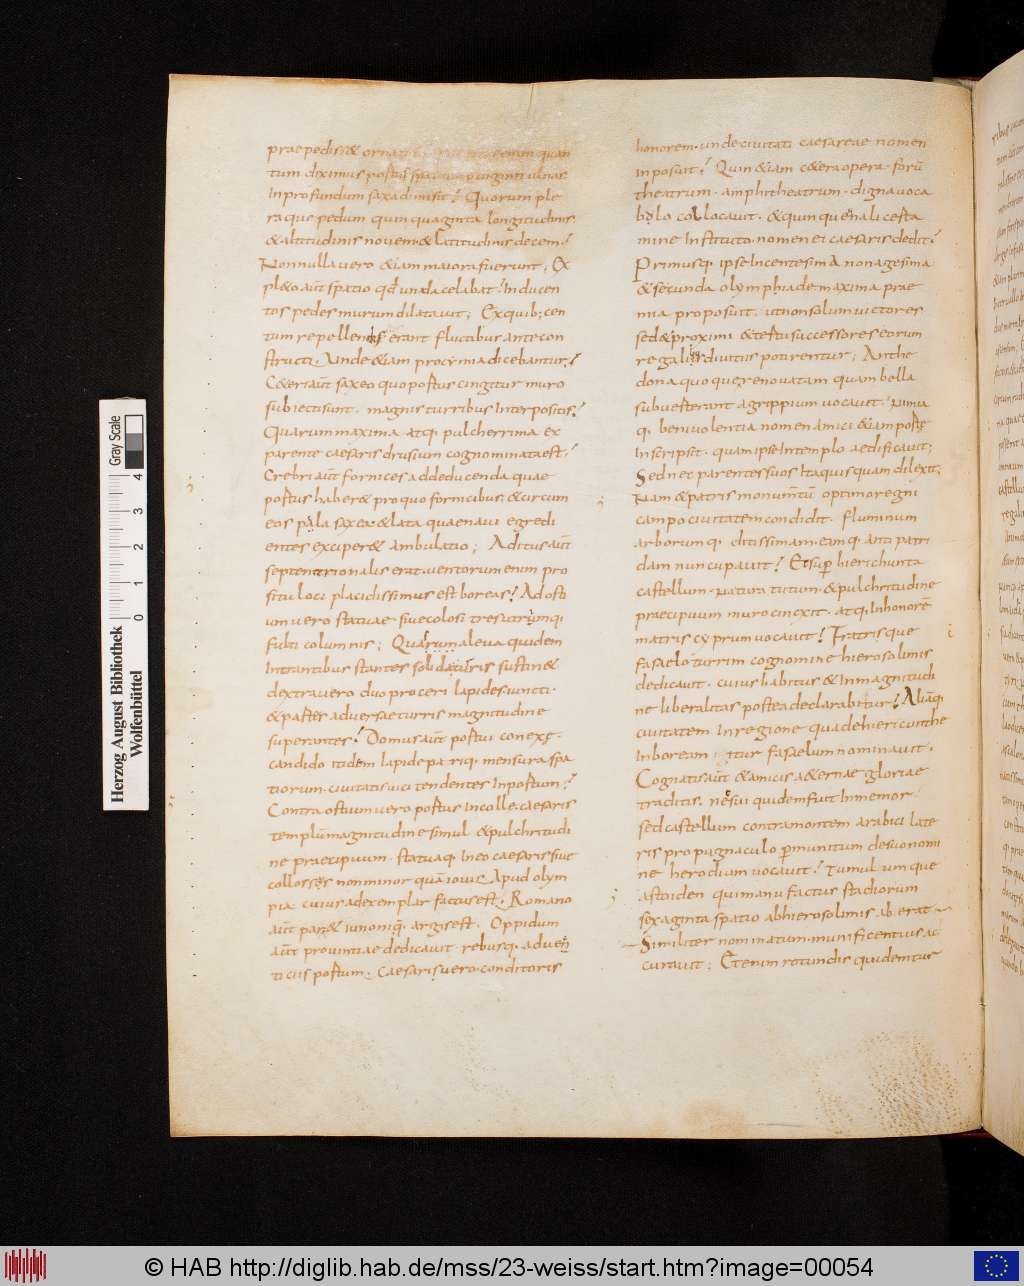 praepedis& orna
tum diximus portus spatium p uirginti ulnas
In profundum saxa dimisit? Quorum ple
raque pedum quinquaginta longitudinis
& altitudinis nouem & latitudinis decem?
Nonnulla uero &iam maiora fuerunt; Ex
pl&o aut̄ spatio qd̄ unda celabat? In ducen
tos pedes murum dilatauit; Ex quib; cen
tum repellendis erant fluctibus ante con
structi. Unde &iam procymia dicebantur?
C&er̄ aut̄ saxeo quo portus cingitur muro
subiecti sunt. magnis turribus Interpositis?
Quarum maxima atq; pulcherrima ex
parente caesaris drusium cognominata est?
Crebri aut̄ fornices ad deducenda quae
portus haber& pro quo fornicibus: & circum
eos pala saxea & lata quae naui egredi
entes exciper& ambulatio; Aditus aut̄
septentrionalis erat. uentorum enim pro
situ loci placidissimus est boreas? Ad osti
um uero statuae. siue colosi tres utrimq;
fulti columnis; Quarum a leua quidem
Intrantibus stantes solida turris sustin&
dextra uero duo proceri lapides iuncti.
& paster aduersae turris magnitudine
superantes? Domus aut̄ portui conexę.
candido itidem lapide patriq; mensura spa
tiorum. ciuitatis uici tendentes In portum?
Contra ostium uero portus In colle. caesaris
templū magnitudine simul & pulchritudi
ne praecipuum. statuaq; In eo caesaris siue
collossęs non minor quā iouis. Apud olym
pia cuius ad exemplar factus est. Romano
aut̄ par & iunoniq; argis est. Oppidum
aut̄ prouintiae dedicauit rebusq; aduen
ticiis portum; Caesaris uero conditoris
honorem. unde ciuitati caesareae nomen
Inposuit? Quin &iam c&era opera. forū
theatrum. amphitheatrum. digna uoca
bulo collocauit. & quinquennali certa
mine Instituto. nomen ei caesaris dedit?
Primusq; ipse In centesima nonagesima
& secunda olymphiade maxima prae
mia proposuit. ut non solum uictores
sed & proximi & tertii successores eorum
regalib; diuitiis potirentur; Anthe
dona quoquę renouatam quam bella
subuerterant agrippium uocauit. nimia
q; beniuolentia nomen amici &iam portę
Inscripsit. quam ipse In templo aedificauit;
Sed nec parentes suos Ita quisquam dilexit;
Nam & patris monumtū optimo regni
campo ciuitatem condidit. fluminum
arborumq; ditissimam. eamq; anti patri
dam nuncupauit? Et sup̄ hierichunta
castellum. natura tutum. & pulchritudine
praecipuum muro cinexit. atq; In honorē
matris cyprum uocauit? Fratris que
fasaelo turrim cognomine hierosolimis
dedicauit. cuius habitus & In magnitudi
ne liberalitas postea declarabitur? Aliāq;
ciuitatem In regione qua de hiericunthe
In boream itur fasaelum nominauit.
Cognatis aut̄ & amicis a&ernae gloriae
traditis. ne sui quidem fuit Inmemor.
sed castellum contra montem arabici late
ris propugnaculo p̄munitum de suo nomi
ne herodium uocauit? Tumulum que
astoiden qui manu factus stadiorum
sexaginta spatio ab hierosolimis aberat
Similiter nominatum. munificentius ac
curauit; Etenim rotundis quidem tur
Herzog August Bibliothek
Wolfenbüttel
Gray Scale
0 1 2 3 4
© HAB http://diglib.hab.de/mss/23-weiss/start.htm?image=00054